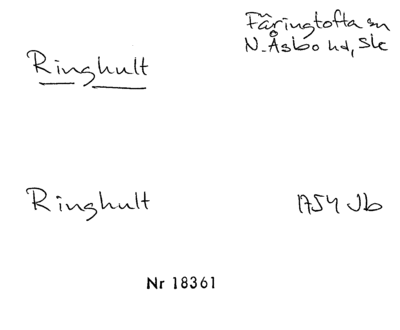 Färingtofta sn
Ringhult
N. Åsbo hd, Sk
Ringhult
1754 Jb
Nr 18361